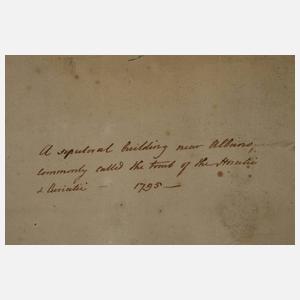 A sepulcral building near Albano,
commonly called the tomb of the Horatii
& Curiatii — 1795 —